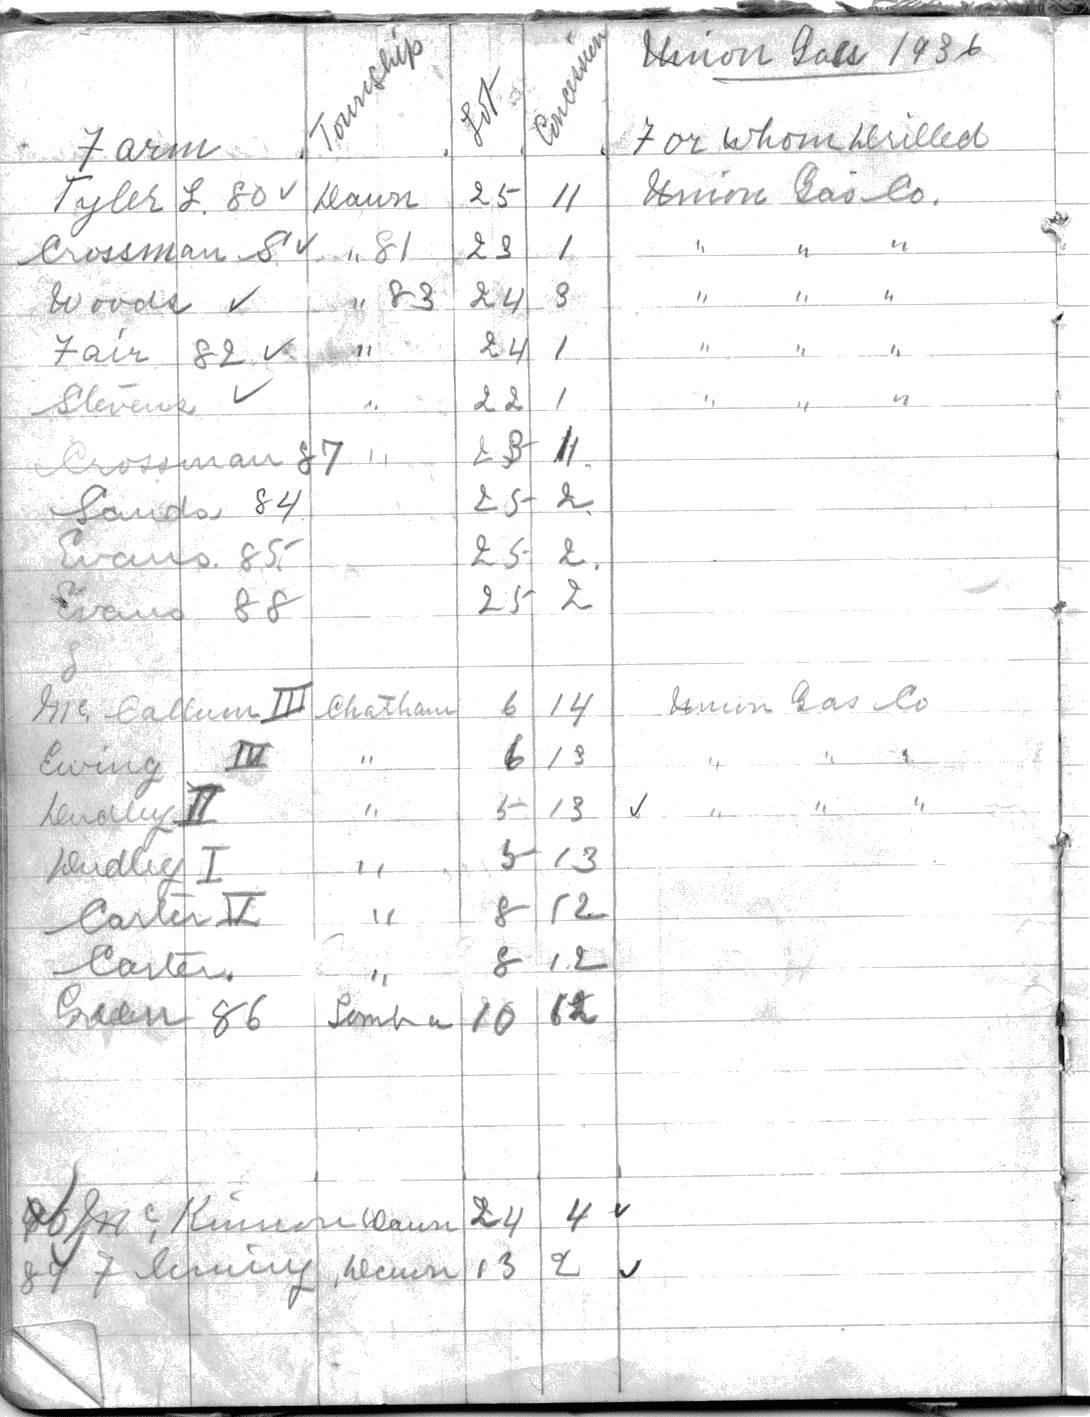 Union Gas 1936
Farm Township Lot Concession For Whom Drilled
Tyler L. 80 ✓ Dawn 25 11 Union Gas Co.
Crossman S. ✓ " 81 23 1 " " "
Woods ✓ " 83 24 3 " " "
Fair 82 ✓ " 24 1 " " "
Stevens ✓ " 22 1 " " "
Crossman 87 " 23 11.
Sands 84 25 2.
Evans. 85 25 2.
Evans 88 25 2
8
Mc Callum III Chatham 6 14 Union Gas Co
Ewing IV " 6 13 " " "
Dudley II " 5 13 ✓ " " "
Dudley I " 5 13
Carter V " 8 12
Carter. " 8 12
Green 86 Sombra 10 12
Mc Kinnon Dawn 24 4 ✓
89 F Dawn 13 2 ✓